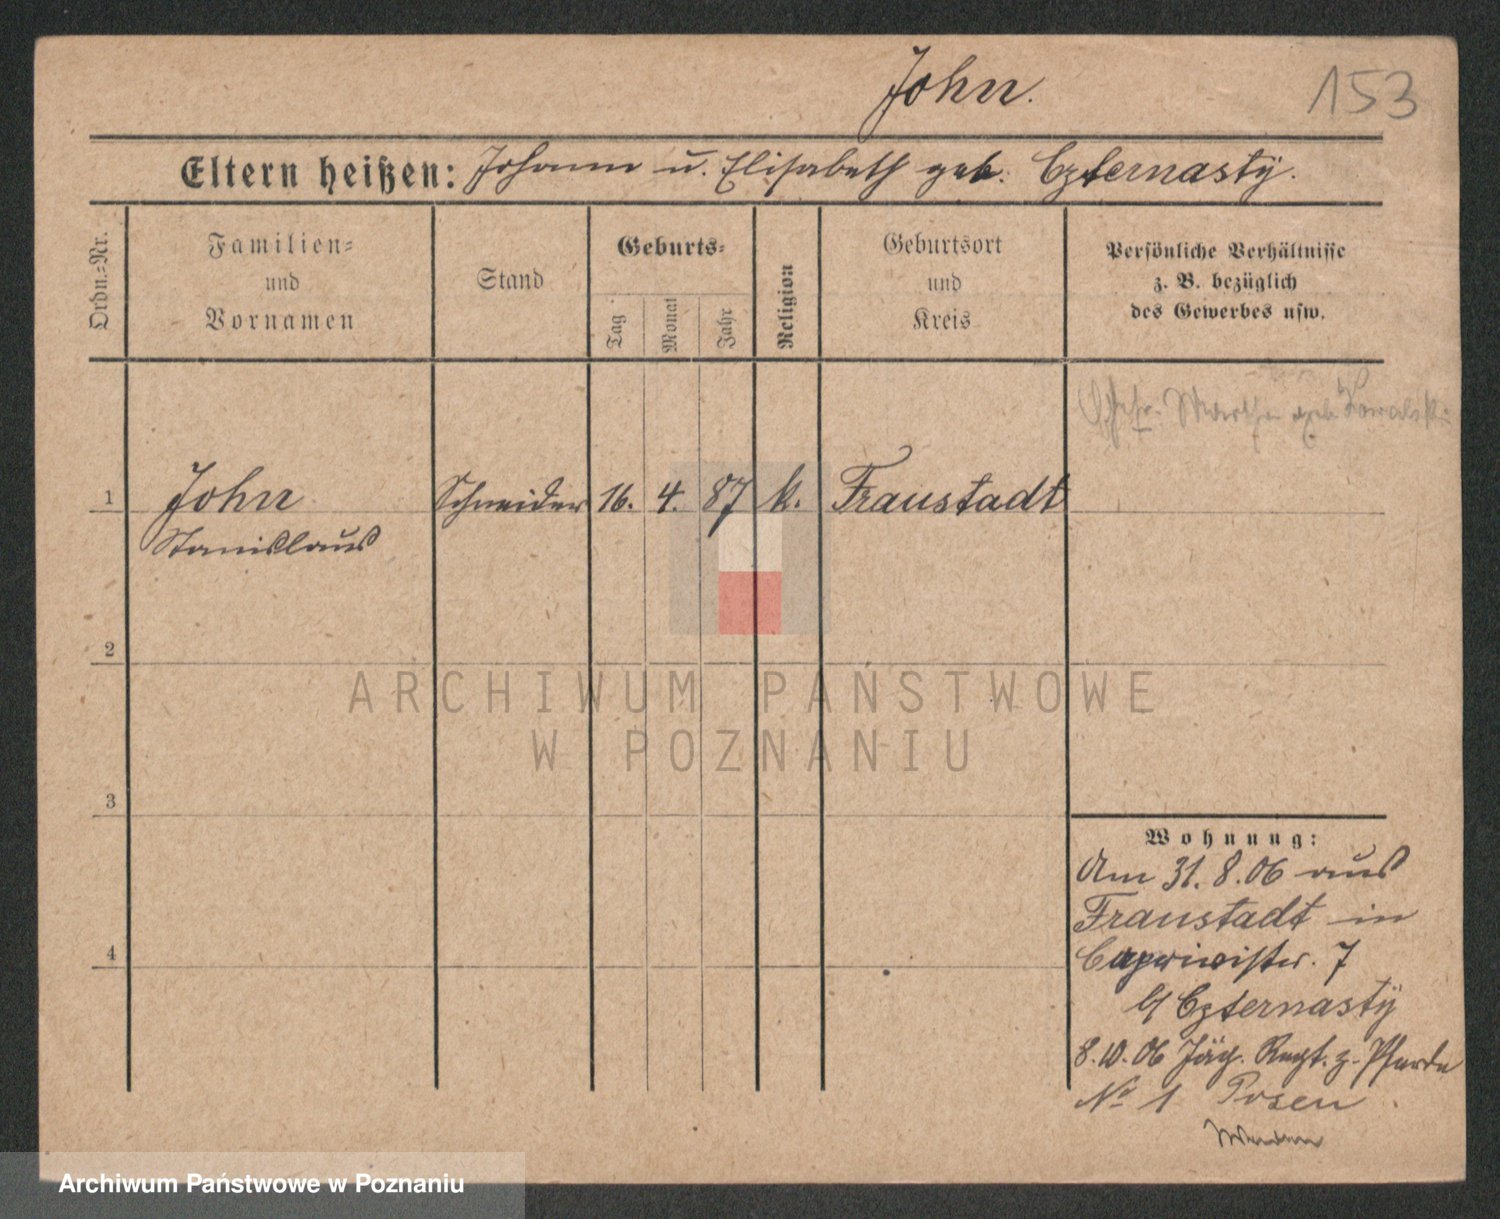 John.
153
Eltern heißen: Johann u. Elisabeth geb. Czternastÿ.
Ordn.-Nr.
Familien- und Vornamen
Stand
Geburts-
Tag
Monat
Jahr
Religion
Geburtsort und Kreis
Persönliche Verhältnisse
z. B. bezüglich
des Gewerbes usw.
Martha geb. Kowalski
1 John Schneider 16. 4. 87 k. Fraustadt
Stanislaus
2
3
4
Wohnung:
Am 31. 8. 06 aus
Fraustadt in
Caprivistr. 7
b/ Czternastÿ
8. 10. 06 Jäg. Regt. z. Pferde
No 1 Posen
ARCHIWUM PAŃSTWOWE
W POZNANIU
Archiwum Państwowe w Poznaniu